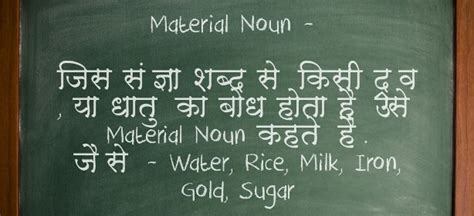 Material Noun -
जिस संज्ञा शब्द से किसी द्रव
, या धातु का बोध होता है उसे
Material Noun कहते हैं .
जैसे - Water, Rice, Milk, Iron,
Gold, Sugar